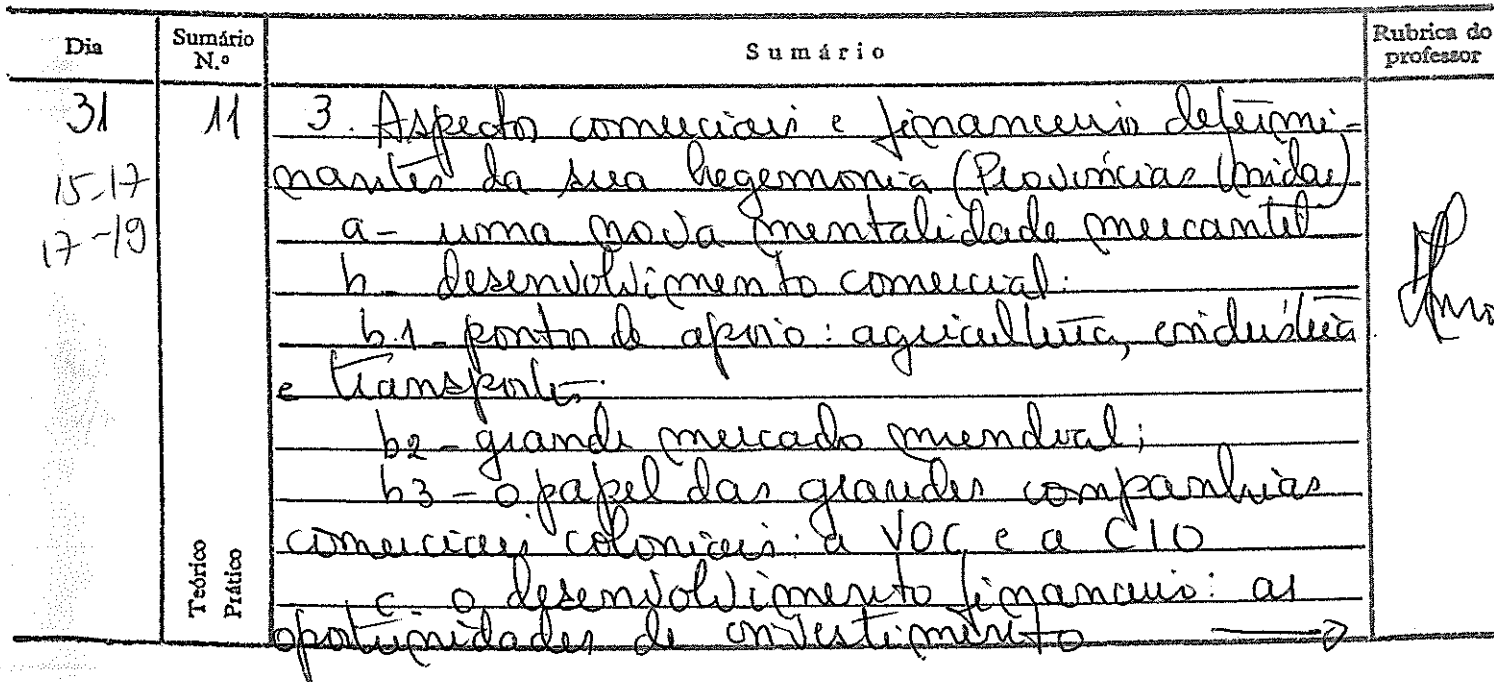 Dia
Sumário N.º
Sumário
Rubrica do professor
31
11
15-17
17-19
3. Aspectos comerciais e financeiros determi-
nantes da sua hegemonia (Províncias Unidas)
a- uma nova mentalidade mercantil
b- desenvolvimento comercial:
b.1- pontos de apoio: agricultura, indústria
e transportes;
b2- grande mercado mundial;
b3- o papel das grandes companhias
comerciais coloniais: a VOC e a CIO
c- o desenvolvimento financeiro: as
oportunidades de investimento →
Teórico
Prático